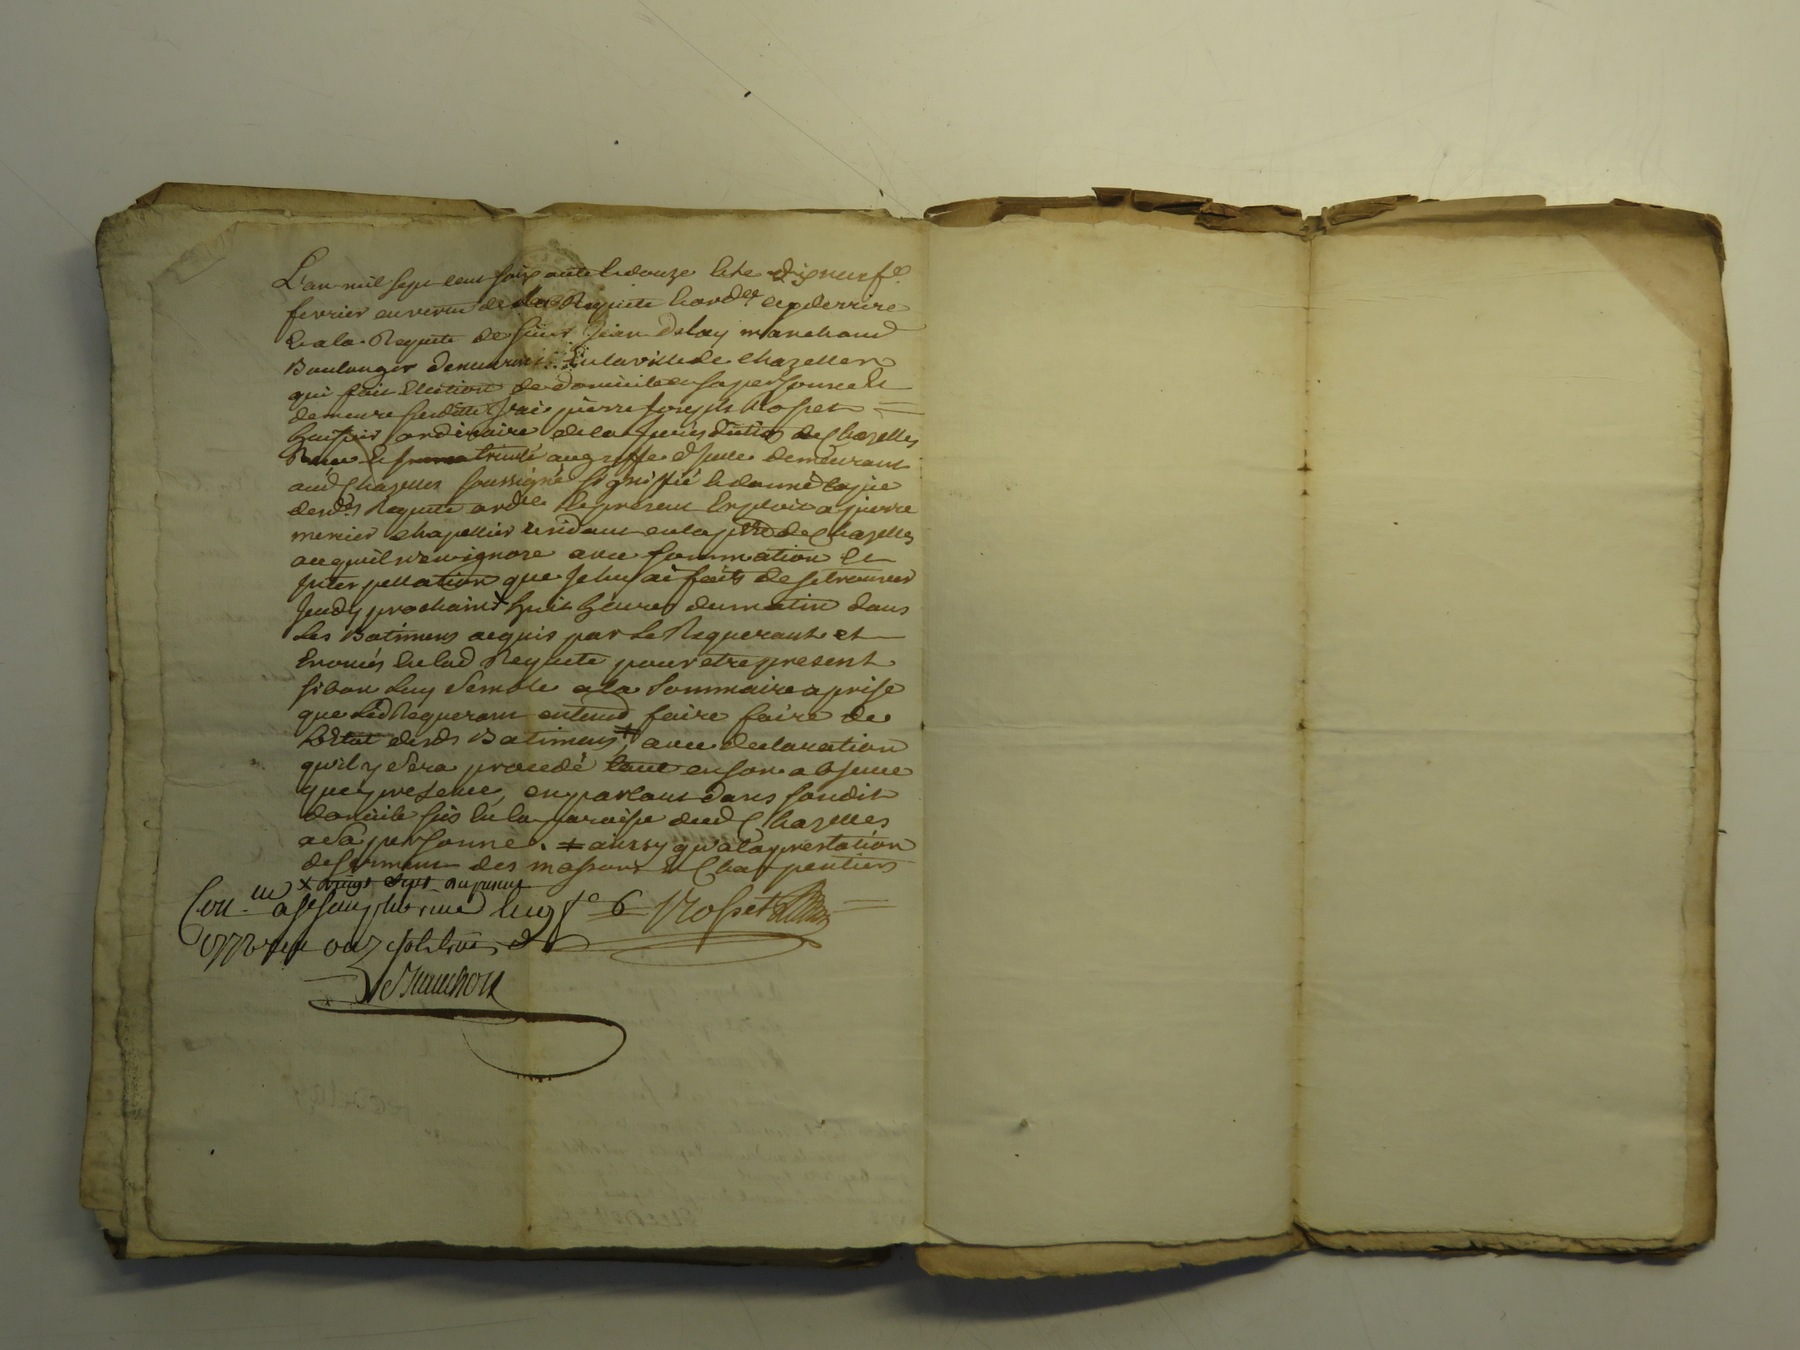 L'an mil sept cent soixante et douze et le dixneuf
fevrier en vertu de la Requete et ord.ce cy derriere
et a la Requete de sieur Jean Delay marchand
Boulanger demeurant en la ville de Chazelles
qui fait Election de domicile en sa personne et
demeure je pierre joseph Rosset
huissier ordinaire de la jurisdiction de Chazelles
au greffe d'jcelle demeurant
aud Chazelles soussigné signiffié et donné copie
desd.s Requete ord.ce et present Exploit a pierre
menier chapellier residant en la p.sse de Chazelles
ace quil n'en ignore avec sommation et
jnterpellation que je luy ai faits de se trouver
jeudy prochain + huit heures du matin dans
les Batimens acquis par le Requerant et
Enoncés en lad Requete pour etre present
si bon luy semble a la sommaire aprise
que led Requerant entend faire faire de
Letat desd.s Batimens +, avec declaration
qu'il y sera procedé tant en son absence
que presence, en parlant dans sondit
domicile sis en la paroisse dud Chazelles
a sa personne. + aussy qu'a la prestation
de serment des massons et Charpentiers
+ vingt sept du present
Con.lé a St Symphorien le 19 f.e Rosset
1772 reçu